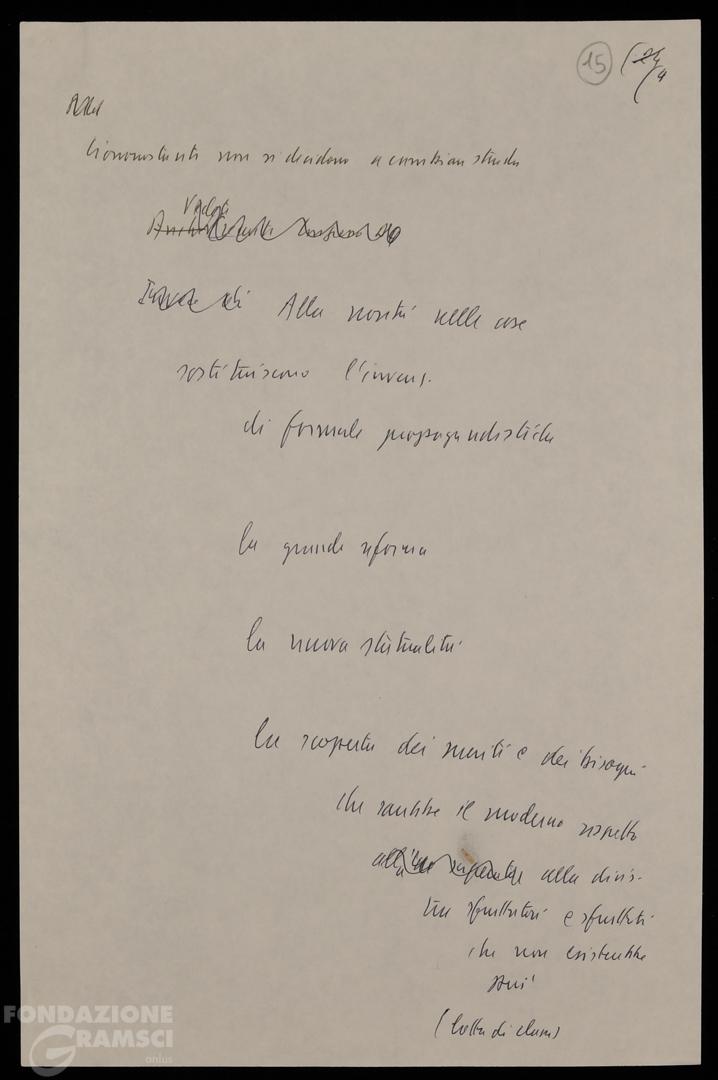 15 (24/4
Alla
Ciononostante non si decidono a cambiare strada
Vedete
Alla novità nelle cose
sostituiscono l'invenz.
di formule propagandistiche
la grande riforma
la nuova statualità
la scoperta dei meriti e dei bisogni
che sarebbe il moderno rispetto
alla divis.
tra sfruttatori e sfruttati
che non esisterebbe
più
(lotta di classe)
FONDAZIONE
GRAMSCI
onlus